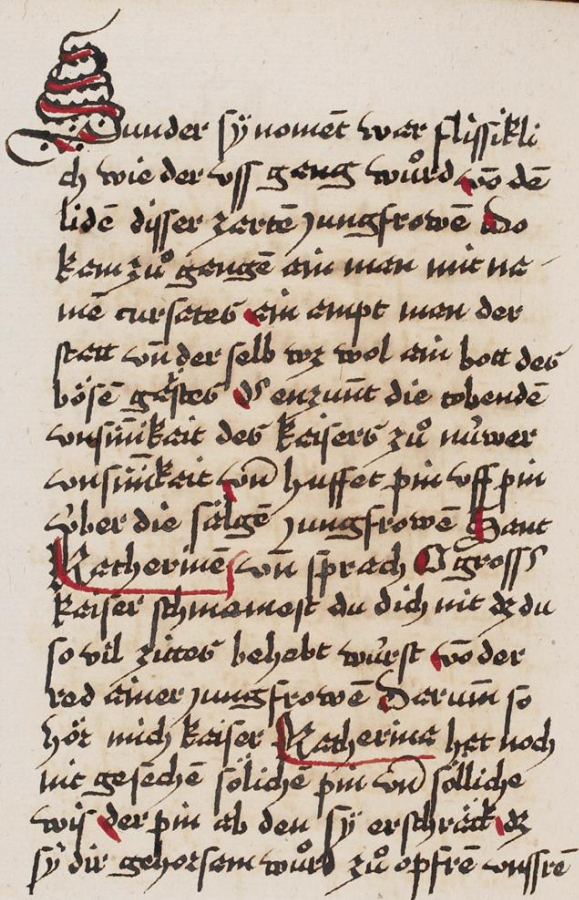 Sunder sÿ nomēt war flissikli
ch wie der vff gang wůrd vō dē
lidē disser zartē jungfrowē Do
kam zů gangē ain man mit na-
mē cursates ain ampt man der
statt vn̄ der selb wz wol ain bott des
bösē gaistes D' enzunt die tobendē
vnsinīkait des keisers zů nüwer
vnsinīkait vn̄ huffet pin vff pin
über die sälgē jungfrowē Sant
Katherinē vn̄ sprach O gross
kaiser schmamest du dich nit dz du
so vil zites behebt würst vō der
red ainer jungfrowē Darum̄ so
hör mich kaiser Katherina hat noch
nit gesechē sölichē pin vn̄ sölliche
wis der pin ab den sÿ erschräck dz
sÿ dir gehorsam wůrd zů opfrē vnssrē